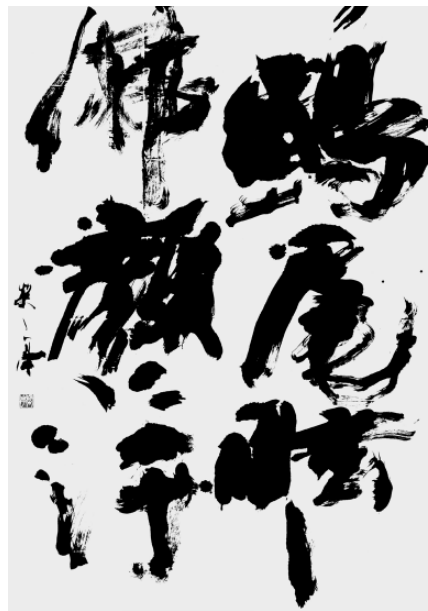 鴟尾眩
佛顔に汗